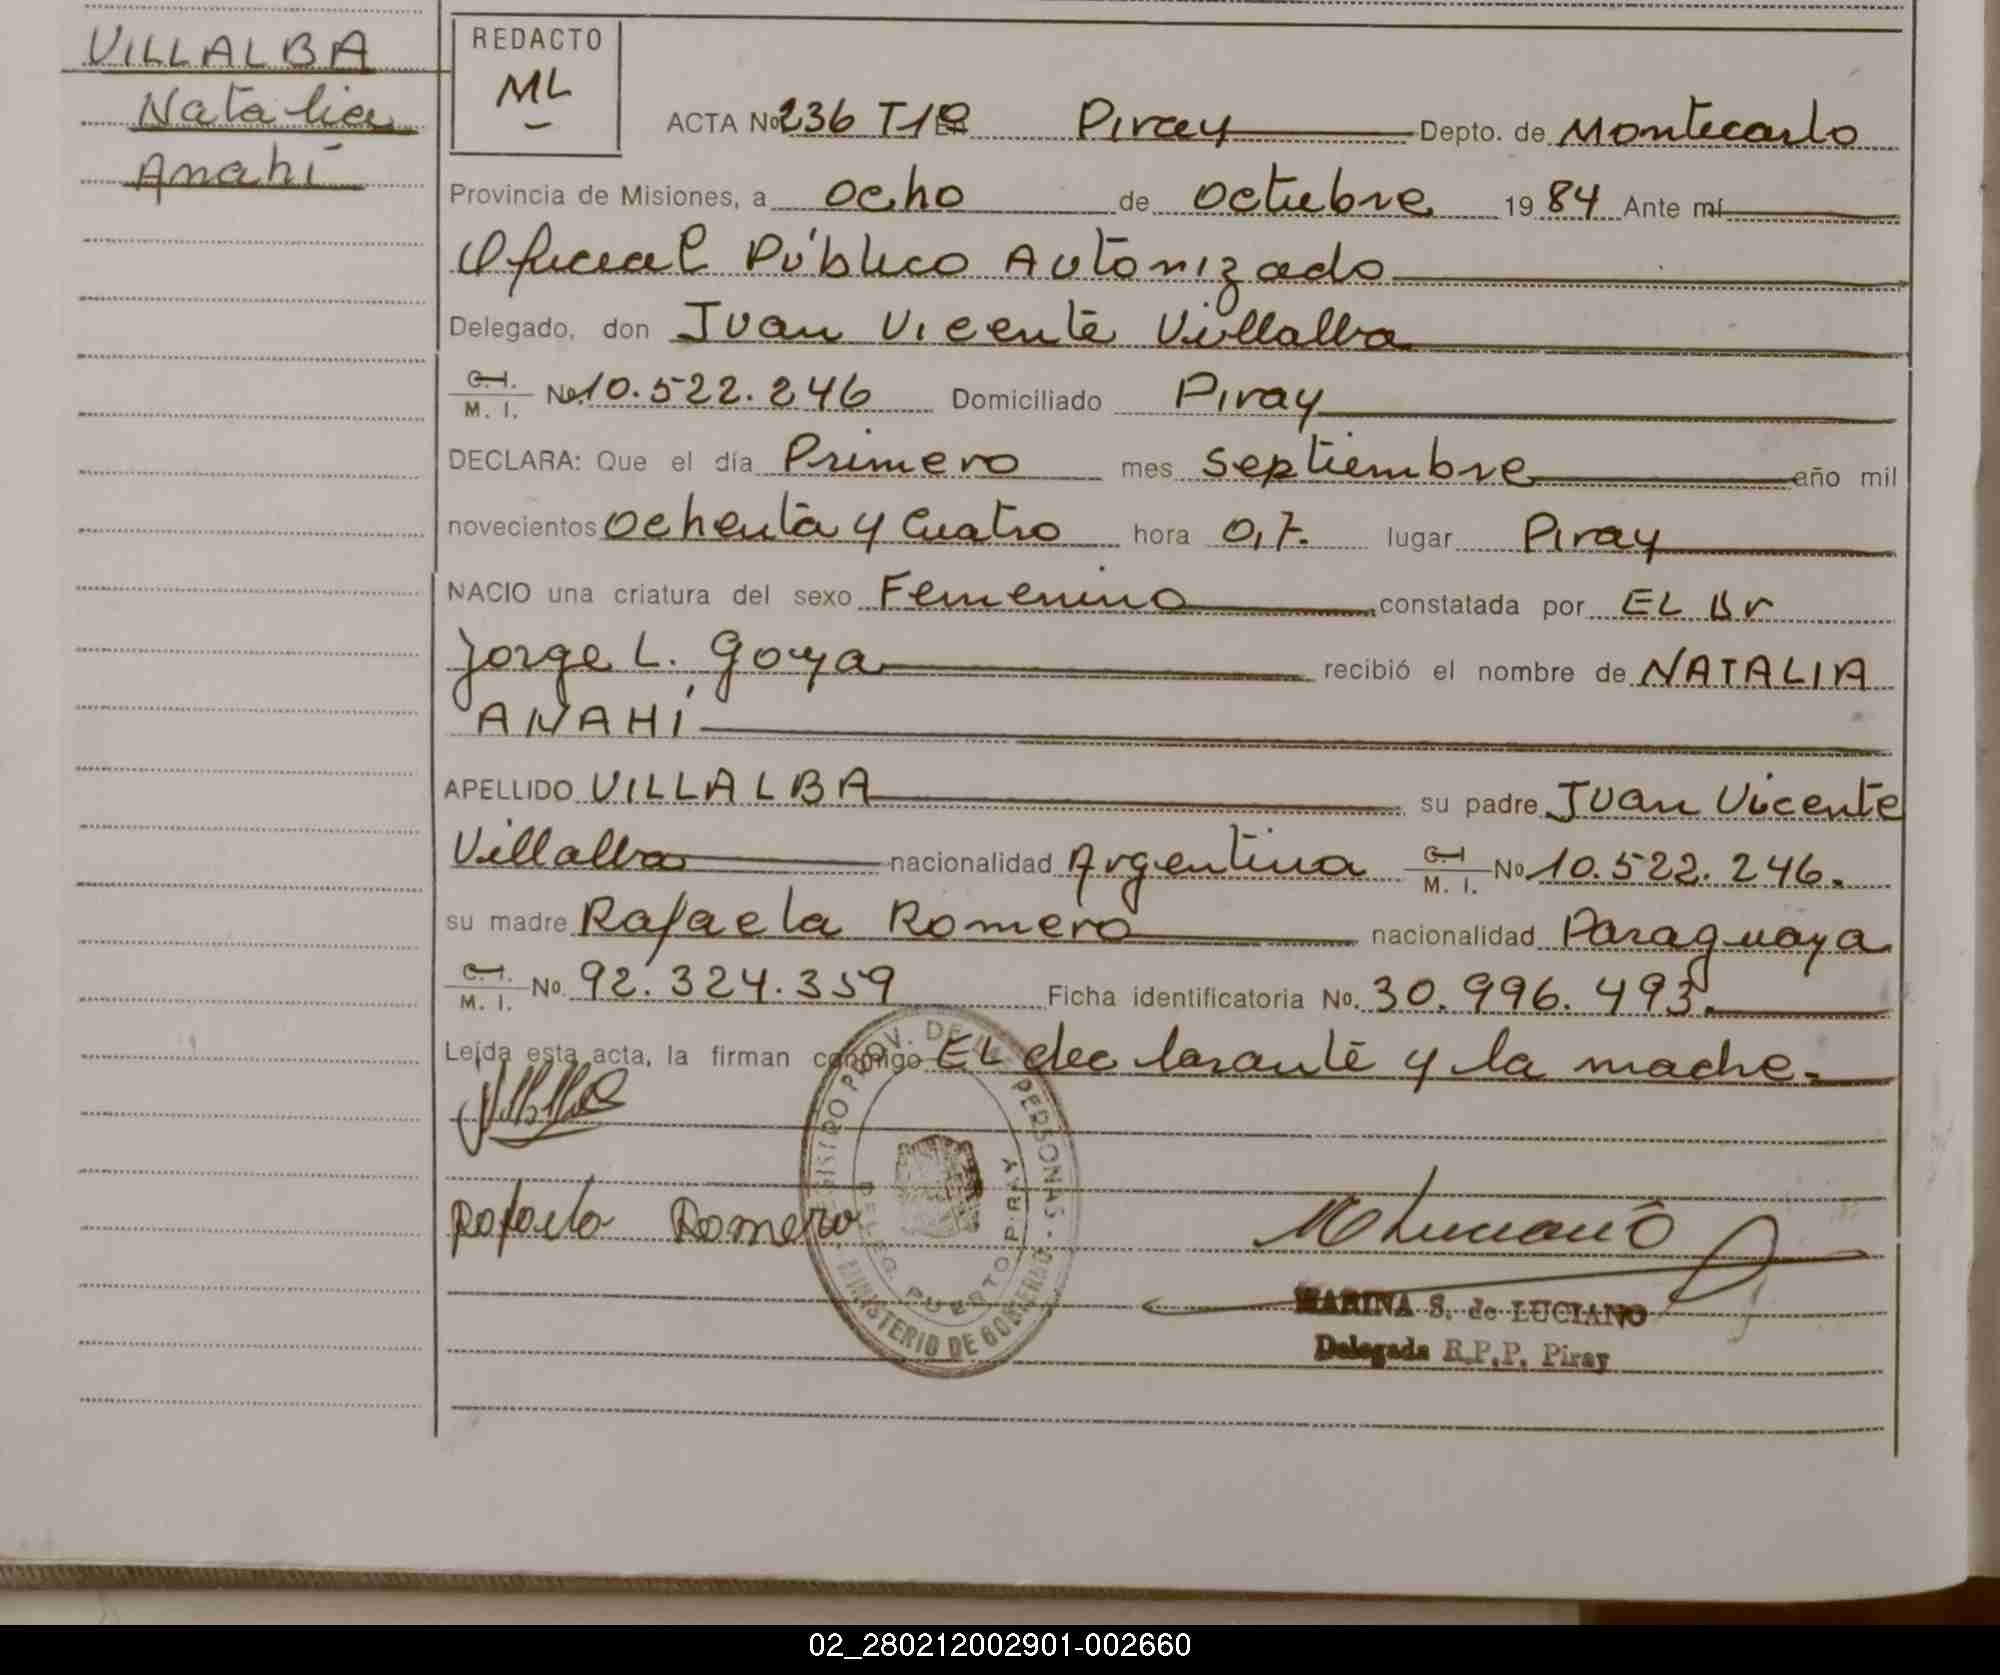 VILLALBA
Natalia
Anahí
REDACTO
ML
ACTA No 236 T1º Piray Depto. de Montecarlo
Provincia de Misiones, a ocho de octubre 1984 Ante mí
Oficial Público Autorizado
Delegado, don Juan Vicente Villalba
C. I. M. I. No. 10.522.246 Domiciliado Piray
DECLARA: Que el día Primero mes septiembre año mil
novecientos ochenta y cuatro hora 0,7. lugar Piray
NACIO una criatura del sexo Femenino constatada por EL Dr
Jorge L. Goya recibió el nombre de NATALIA
ANAHÍ
APELLIDO VILLALBA su padre Juan Vicente
Villalba nacionalidad Argentina C. I. M. I. No 10.522.246.
su madre Rafaela Romero nacionalidad Paraguaya
C. I. M. I. No. 92.324.359 Ficha identificatoria No. 30.996.493.
Leída esta acta, la firman conmigo EL declarante y la madre.
Rafaela Romero
PROV. DE PERSONAS - MINISTERIO DE GOBIERNO
DELEG. PUERTO PIRAY
MARINA S. de LUCIANO
Delegada R.P.P. Piray
02_280212002901-002660